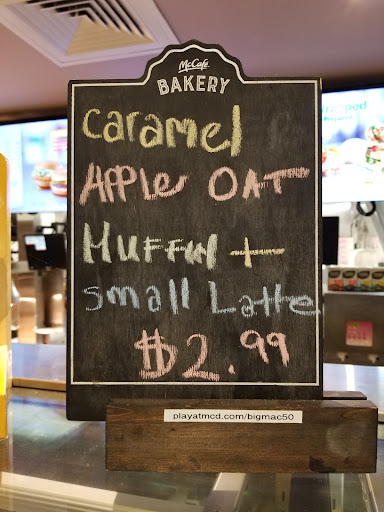 McCafé
BAKERY
caramel
Apple OAT
Muffin +
small Latte
$2.99
playatmcd.com/bigmac50